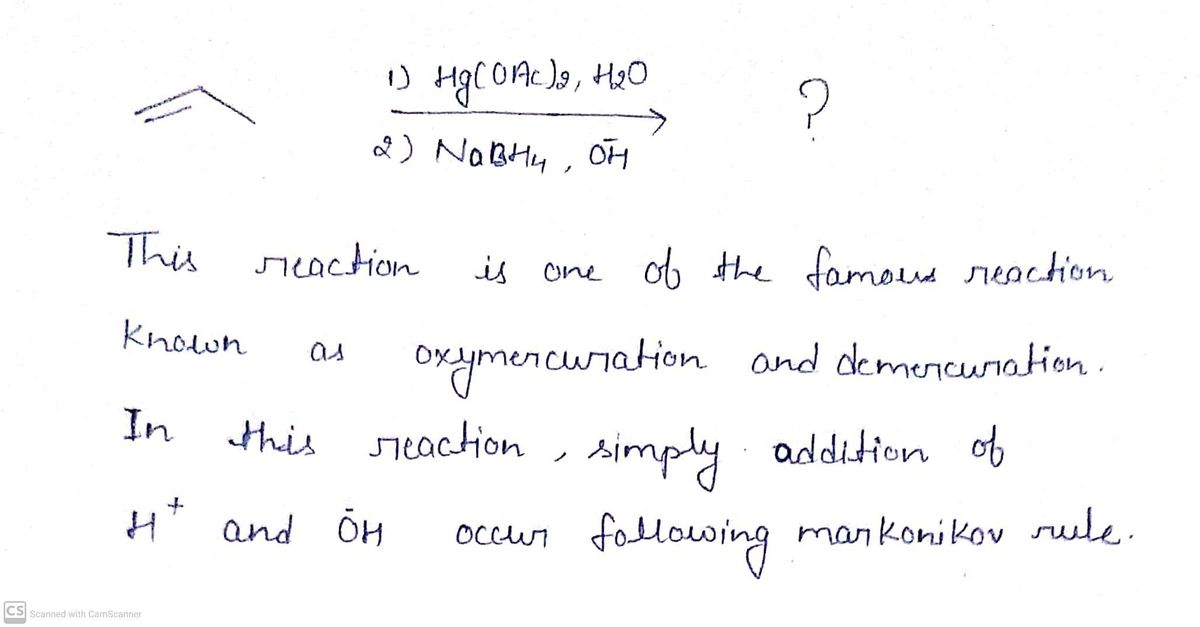 1) Hg(OAc)2, H2O
?
2) NaBH4, ŌH
This reaction is one of the famous reaction
Known as oxymercuration and demercuration.
In this reaction, simply addition of
H+ and ŌH occur following markonikov rule.
CS Scanned with CamScanner